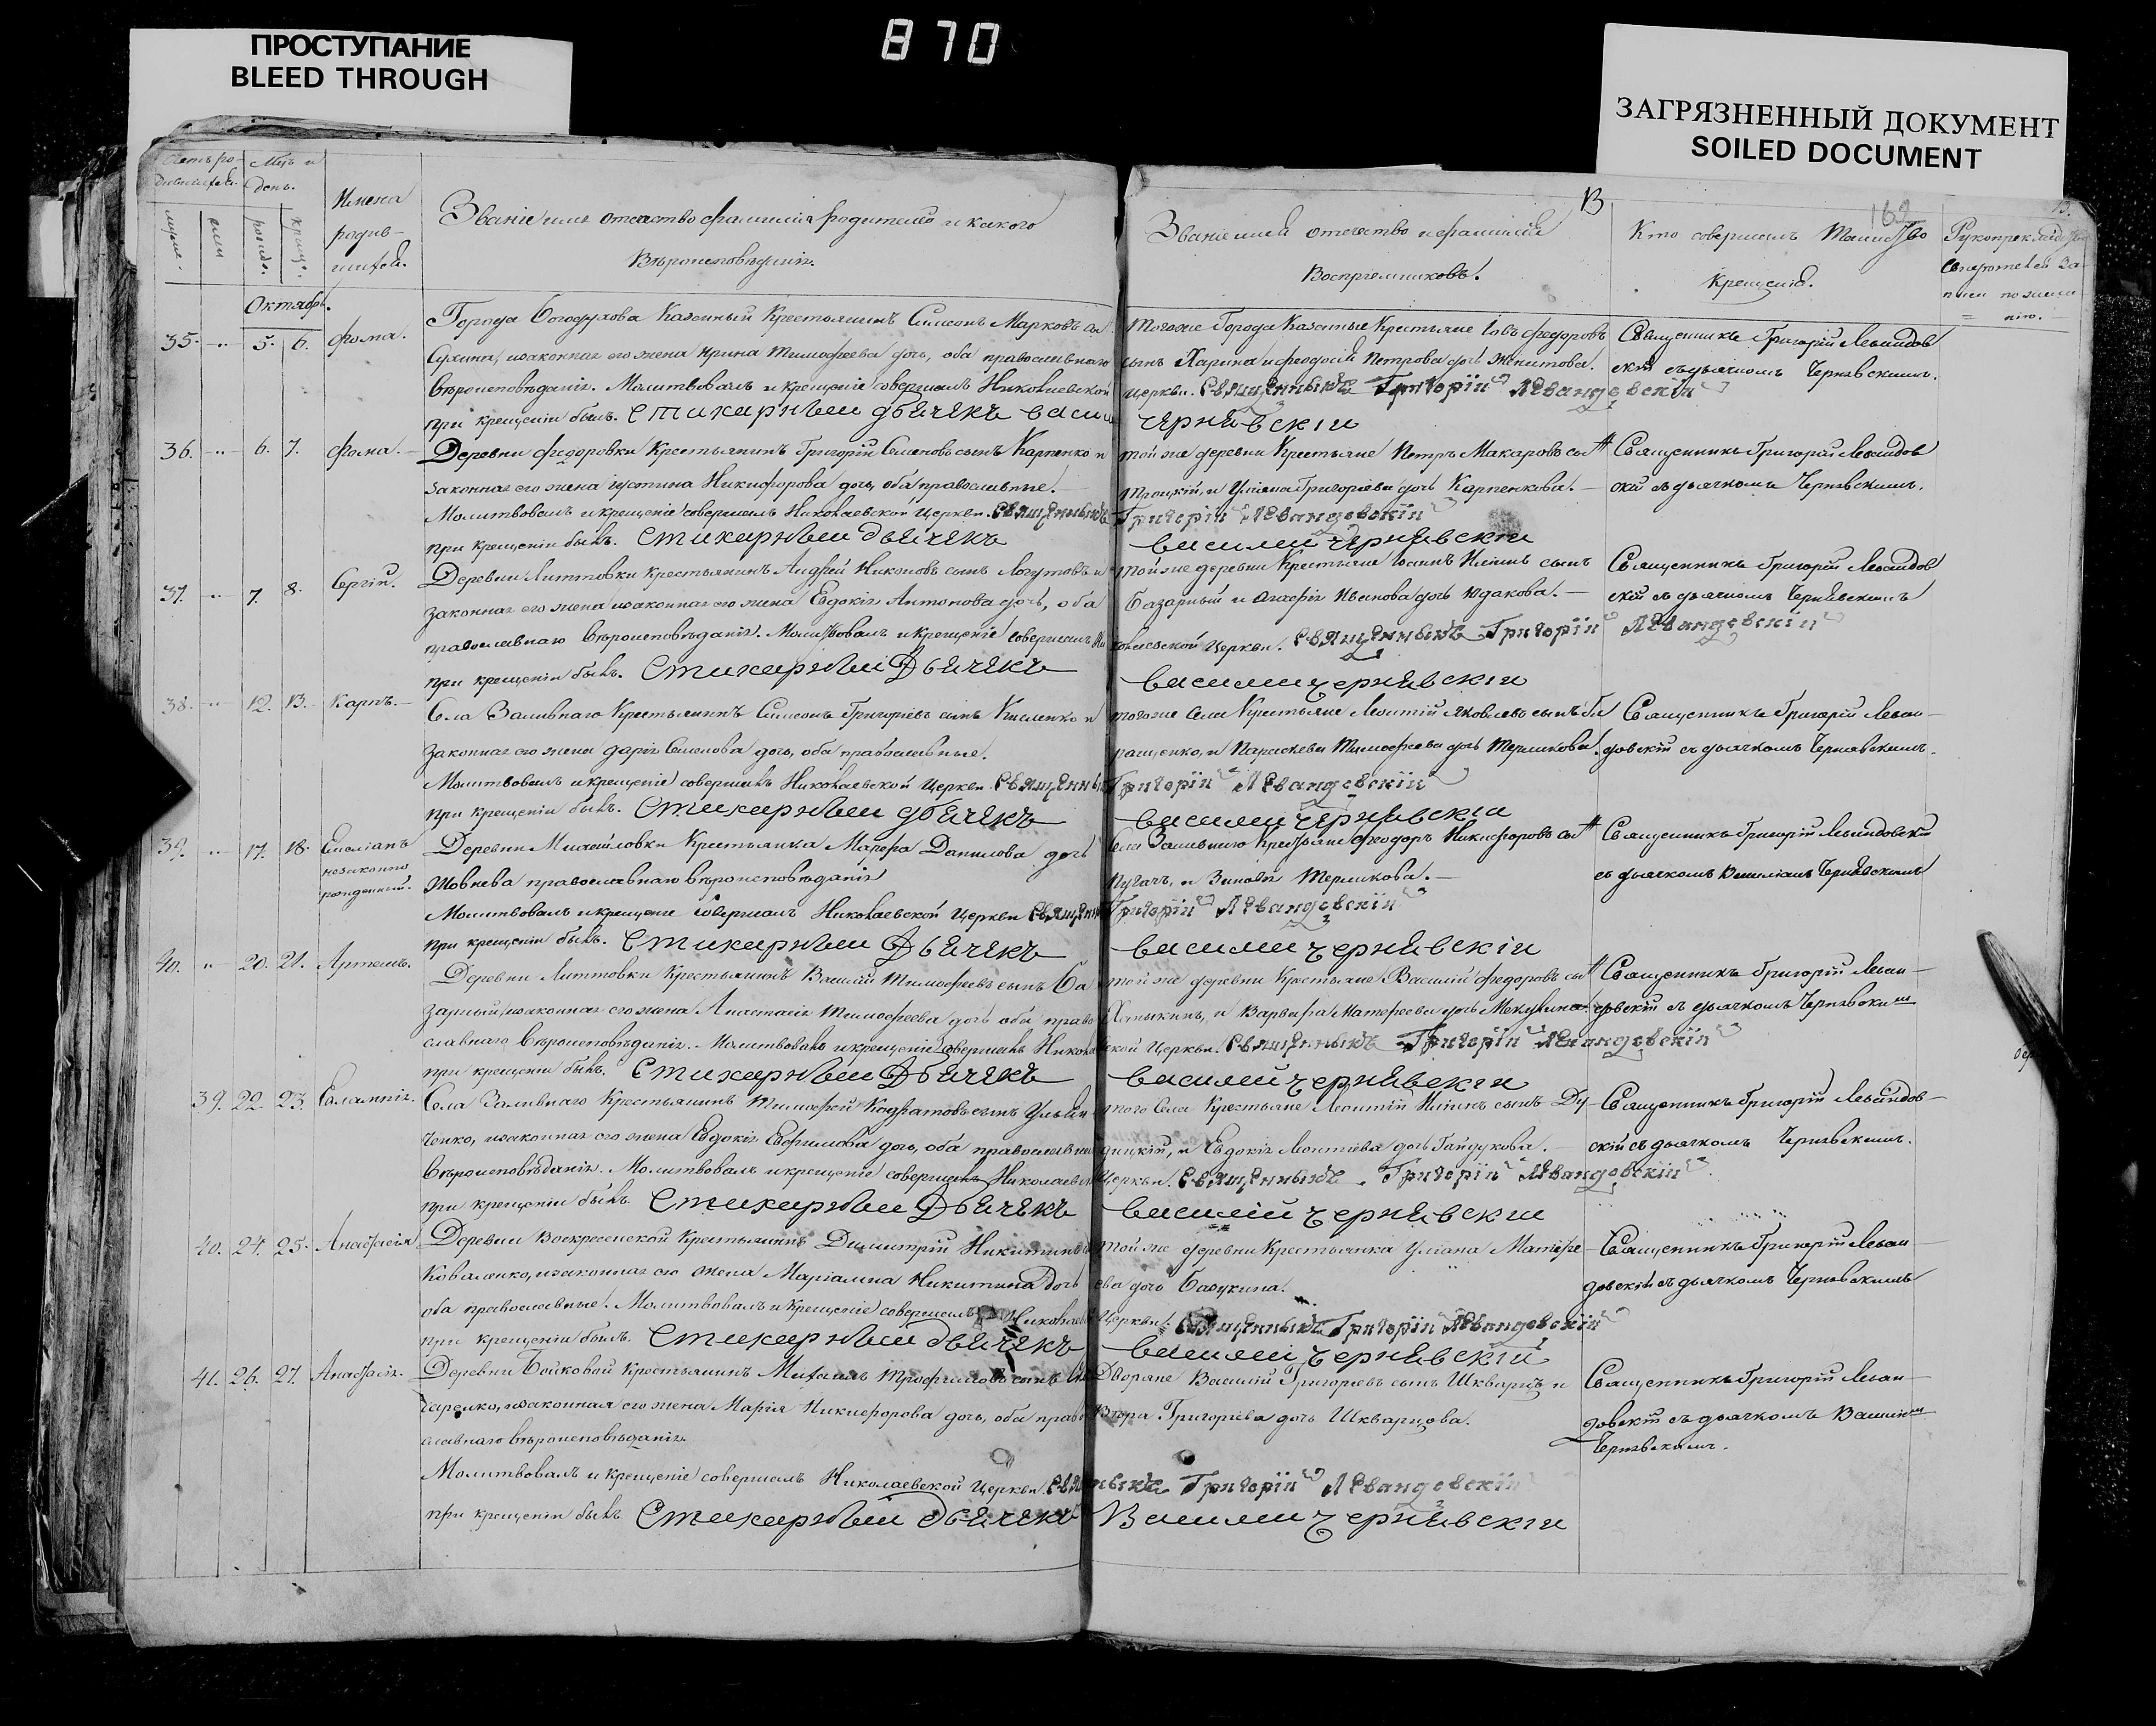 ПРОСТУПАНИЕ
BLEED THROUGH
870
ЗАГРЯЗНЕННЫЙ ДОКУМЕНТ
SOILED DOCUMENT
Имена
родив-
шихся.
Званіе имя отечество фамилія родителей и какого
Вѣроисповѣданія.
13
169
Званіе имя отечество и фамилія
Воспріемниковъ.
Кто совершалъ Таинство
Крещенія.
Октябрь.
35. 5. 6. Фома.
Города Богодухова Казенный Крестьянинъ Симеонъ Марковъ
законная его жена Ирина Тимофеева дочь, оба православнаго
вѣроисповѣданія. Молитвовалъ и крещеніе совершалъ Николаевской
при крещеніи былъ. Стихарный дьячекъ Васи
тогоже Города Казенные Крестьяне Іовъ Федоровъ
сынъ Харина и Феодосія Петрова дочь
церкви. Священникъ Григорій Левандовскій
Чернявскій
Священникъ Григорій Левандов
скій съ дьячкомъ Чернявскимъ.
36. 6. 7. Фома.
Деревни Федоровки Крестьянинъ Григорій Семеновъ сынъ Карпенко и
законная его жена Іустина Никифорова дочь, оба православные.
Молитвовалъ и крещеніе совершалъ Николаевской Церкви. Священникъ
при крещеніи былъ. Стихарный дьячекъ
той же деревни Крестьяне Петръ Макаровъ
Троцкій, и Уліяна Григоріева дочь Карпенкова.
Григорій Левандовскій
Василій Чернявскій
Священникъ Григорій Левандов
скій съ дьячкомъ Чернявскимъ.
37. 7. 8. Сергій.
Деревни Литтовки Крестьянинъ Андрей Никоновъ сынъ Логутовъ и
законная его жена законная его жена Евдокія Антонова дочь, оба
православнаго вѣроисповѣданія. Молитвовалъ и крещеніе совершалъ Ни
при крещеніи былъ. Стихарный Дьячекъ
той же деревни Крестьяне Іоаннъ Ильинъ сынъ
Базарный и Агафія Иванова дочь Юдакова.
колаевской Церкви. Священникъ Григорій Левандовскій
Василій Чернявскій
Священникъ Григорій Левандов
скій съ дьячкомъ Чернявскимъ
38. 12. 13. Карпъ.
Села Заливнаго Крестьянинъ Симеонъ Григоріевъ сынъ Кисленко и
законная его жена Дарія Семенова дочь, оба православные.
Молитвовалъ и крещеніе совершалъ Николаевской Церкви. Священни
при крещеніи былъ. Стихарный дьячекъ
тогоже Села Крестьяне Леонтій Яковлевъ сынъ
и Параскева Тимофеева дочь Термикова.
Григорій Левандовскій
Василій Чернявскій
Священникъ Григорій Леван-
довскій съ дьячкомъ Чернявскимъ.
39. 17. 18. Емеліанъ
незаконно
рожденный.
Деревни Михайловки Крестьянка Марфа Данилова дочь
Жовнева православнаго вѣроисповѣданія
Молитвовалъ и крещеніе совершалъ Николаевской Церкви Священ
при крещеніи былъ. Стихарный Дьячекъ
Села Заливнаго Крестьяне Феодоръ Никифоровъ
Пугачъ, и Зиновія Термикова.
Григорій Левандовскій
Василій Чернявскій
Священникъ Григорій Левандовскій
съ дьячкомъ Василіемъ Чернявскимъ
40. 20. 21. Артемъ.
Деревни Литтовки Крестьянинъ Василій Тимофеевъ сынъ Ба
зарный, законная его жена Анастасія Тимофеева дочь оба право
славнаго вѣроисповѣданія. Молитвовалъ и крещеніе совершалъ Никола
при крещеніи былъ. Стихарный Дьячекъ
той же деревни Крестьяне Василій Федоровъ
и Варвара Матфеева дочь
ской Церкви. Священникъ Григорій Левандовскій
Василій Чернявскій
Священникъ Григорій Леван-
довскій съ дьячкомъ Чернявским
39. 22. 23. Евлампія.
Села Заливнаго Крестьянинъ Тимофей Кондратовъ сынъ Ульян
ченко, законная его жена Евдокія Евфимова дочь, оба православнаго
вѣроисповѣданія. Молитвовалъ и крещеніе совершалъ Николаевской
при крещеніи былъ Стихарный Дьячекъ
того Села Крестьяне Леонтій Ильинъ сынъ Ду-
дицкій, и Евдокія Леонтіева дочь Гайдукова.
Церкви. Священникъ Григорій Левандовскій
Василій Чернявскій
Священникъ Григорій Левандов-
скій съ дьячкомъ Чернявскимъ.
40. 24. 25. Анастасія
Деревни Воскресенской Крестьянинъ Димитрій Никитинъ
Коваленко, законная его жена Маріамна Никитина Дочь
оба православные. Молитвовалъ и крещеніе совершалъ Николаев
при крещеніи былъ. Стихарный Дьячекъ
той же деревни Крестьянка Уліана Матфе-
ева дочь Бабукина.
Церкви. Священникъ Григорій Левандовскій
Василій Чернявскій
Священникъ Григорій Леван-
довскій съ дьячкомъ Чернявскимъ
41. 26. 27. Анастасія.
Деревни Бойковой Крестьянинъ Михаилъ Трофимовъ сынъ
законная его жена Марія Никифорова дочь, оба право
славнаго вѣроисповѣданія.
Молитвовалъ и крещеніе совершалъ Николаевской Церкви. Свя
при крещеніи былъ Стихарный Дьячекъ
Дворяне Василій Григорьевъ сынъ Шкварцъ и
Вѣра Григоріева дочь Шкварцова.
Григорій Левандовскій
Василій Чернявскій
Священникъ Григорій Леван-
довскій съ дьячкомъ Василіем
Чернявскимъ.